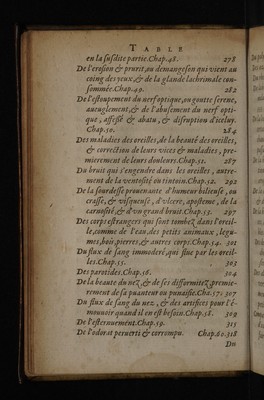 TABLE
en la susdite partie. Chap. 48. 278
De l'erosion & prurit, ou demangeson qui vient au
coing des yeux, & de la glande lachrimale con-
sommée. Chap. 49. 282
De l'estoupement du nerf optique, ou goutte serene,
aueuglement, & de l'abaissement du nerf opti-
que, affessé & abatu, & disruption d'iceluy.
Chap. 50. 284
Des maladies des oreilles, de la beauté des oreilles,
& correction de leurs vices & maladies, pre-
mierement de leurs douleurs. Chap. 51. 287
Du bruit qui s'engendre dans les oreilles, autre-
ment de la ventosité ou tintoin. Chap. 52. 292
De la sourdesse prouenante d'humeur bilieuse, ou
crasse, & visqueuse, d'vlcere, aposteme, de la
carnosité, & d'vn grand bruit. Chap. 53. 297
Des corps estrangers qui sont tombez dans l'oreil-
le, comme de l'eau, des petits animaux, legu-
mes, bois, pierres, & autres corps. Chap. 54. 301
Du flux de sang immoderé, qui flue par les oreil-
les. Chap. 55. 303
Des parotides. Chap. 56. 304
De la beaute du nez, & de ses difformitez, premie-
rement de sa puanteur ou punaisie. Cha. 57. 307
Du flux de sang du nez, & des artifices pour l'é-
mouuoir quand il en est besoin. Chap. 58. 309
De l'esternuement. Chap. 59. 315
De l'odorat peruerti & corrompu. Chap. 60. 318
Du